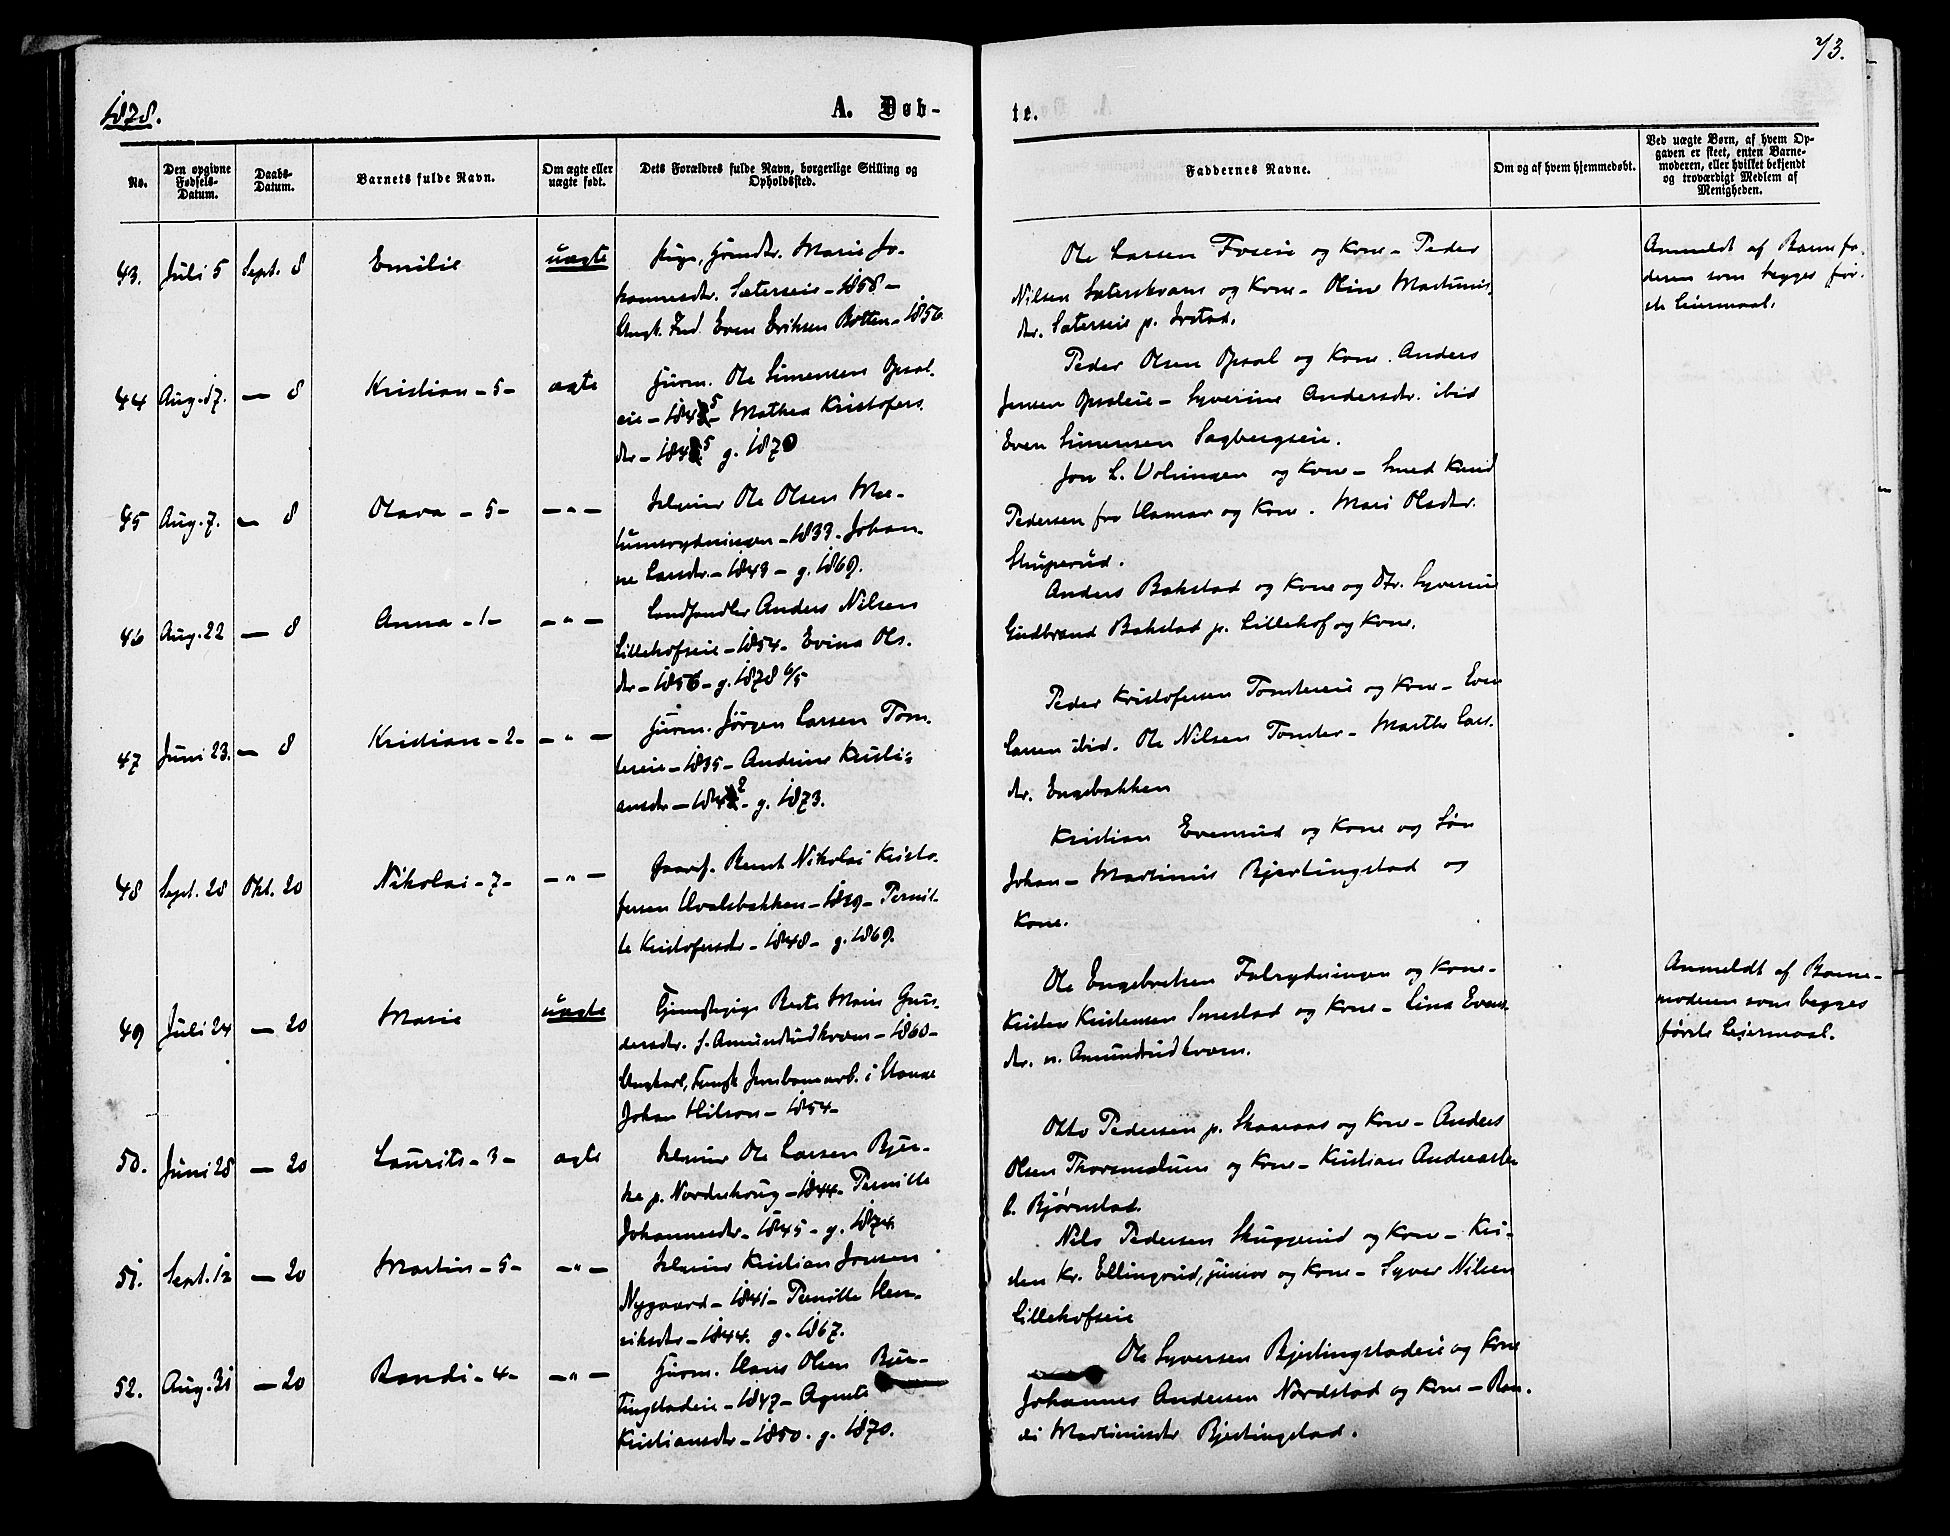 73.
1878.
A. Døb-
te.
No.
Den opgivne Fødsels-Datum.
Daabs-Datum.
Barnets fulde Navn.
Om ægte eller uægte født.
Dets Forældres fulde Navn, borgerlige Stilling og Opholdssted.
Faddernes Navne.
Om og af hvem hjemmedøbt.
Ved uægte Børn, af hvem Opgaven er skeet, enten Barnemoderen, eller hvilket bekjendt og troværdigt Medlem af Menigheden.
43. Juli 5 Sept. 8 Emilie uægte
Pige, Marie Jo-
hannesdtr. Sæterseie - 1858 -
Ungk. Even Eriksen Botten - 1856
Ole Larsen Foseie og Kone - Peder
Nilsen Sæterskvam og Kone - Oline Martinus-
dtr. Sæterseie p.
Anmeldt af Barnefa-
deren som begges før-
ste Leiermaal.
44 Aug. 17. - 8 Kristian - 5 - ægte
Huusm. Ole Simensen Opsal-
eie - 1845 - Mathea Kristofers
dtr - 1845 g. 1870
Peder Olsen Opsal og Kone. Anders
Jensen Opsaleie - Syverine Andersdtr. ibid
Even Simensen Sagbergseie.
45 Aug. 7. - 8 Olava - 5 - - " -
Selveier Ole Olsen
- 1833 - Johan-
ne Larsdtr. - 1843 - g. 1869.
Jon L. og Kone - Smed Knud
Pedersen fra Hamar og Kone. Mari Olsdtr.
46 Aug. 22 - 8 Anna - 1 - - " -
Landhandler Anders Nilsen
Lillehofseie - 1854 - Evina Ols-
dtr - 1856 - g. 1878 6/5
Anders Bakstad og Kone og Dtr. Syverine
Gudbrand Bakstad p. Lillehof og Kone.
47 Juni 23. - 8 Kristian - 2 - - " -
Huusm. Jørgen Larsen Tom-
tereie - 1835 - Andrine Kristi-
ansdtr - 1842 - g. 1873.
Peder Kristofersen Tomtereie og Kone - Even
Larsen ibid. Ole Nilsen Tomter - Marthe Lars-
dtr. Engebakken
48 Sept. 28 Okt. 20 Nikolai - 7 - - " -
Bernt Nikolai Kristo-
fersen Hvalsbakken - 1839 - Pernil-
le Kristofersdtr - 1848 - g. 1869.
Kristian Evensrud og Kone og Søn
Johan - Martinius Bjertingstad og
Kone.
49 Juli 24 - 20 Marie uægte
Berte Marie Gun-
dersdtr. f. Amundrudkvæn - 1860 -
Ungkarl, Jernbanearb. i Stange
Johan Nilson - 1854 -
Ole Engebretsen Falsrydningen og Kone -
Kristen Kristensen Sonestad og Kone - Lina Evens-
dtr. n. Amundrudkvæn.
Anmeldt af Barne-
moderen som begges
første Leiermaal.
50. Juni 28 - 20 Laurits - 3 - ægte
Selveier Ole Larsen Bjer-
ke p. Nordrehoug - 1844 - Pernille
Johannesdtr - 1845 - g. 1874
Otto Pedersen p. Skaaraas og Kone - Anders
Olsen og Kone - Kristian
Bjørnstad.
51. Sept. 12 - 20 Martin - 5 - - " -
Selveier Kristian Jonsen
Nygaard - 1841 - Pernille Hen-
riksdtr - 1844. g. 1867.
Nils Pedersen Skuggerud og Kone - Kri-
sten Kr. Ellingsrud, junior og Kone - Syver Nilsen
Lillehofseie
52. Aug. 31 - 20 Randi - 4 - - " -
Huusm. Hans Olsen Bjer-
tingstadeie - 1847 - Agnete
Kristiansdtr - 1850. g. 1870.
Ole Syversen Bjertingstadeie og Kone
Johannes Andersen Nordstad og Kone - Ran-
di Martinusdtr Bjertingstad.